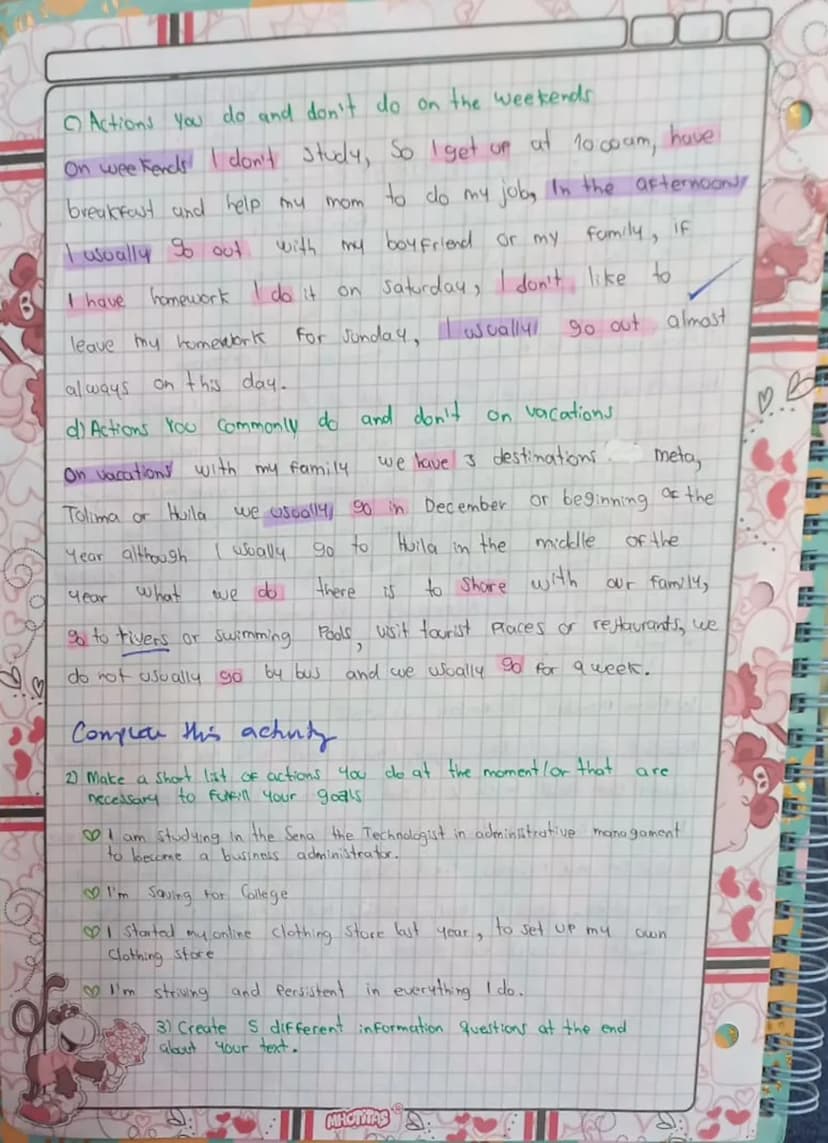 c) Actions you do and don't do on the weekends
On weekends I don't study, So I get up at 10:00am, have
breakfast and help my mom to do my job, In the afternoons
I usually go out with my boyfriend or my family, if
I have homework I do it on Saturday, I don't like to
leave my homework for sunday, I usually go out almost
always on this day.
d) Actions you commonly do and don't on vacations
On vacations with my family we have 3 destinations meta,
Tolima or Huila we usually go in December or beginning of the
year although I usually go to Huila in the middle of the
year what we do there is to share with our family,
go to rivers or swimming pools, visit tourist places or restaurants, we
do not usually go by bus and we usually go for a week.
this activity
2) Make a short list of actions you do at the moment/or that are
necessary to fulfill your goals
I am studying in the Sena the Technologist in administrative managament
to become a business administrator.
I'm saving for College
I started my online clothing store last year, to set up my own
clothing store
I'm striving and persistent in everything I do.
3) Create 5 different information questions at the end
about your text.
MHOTITAS